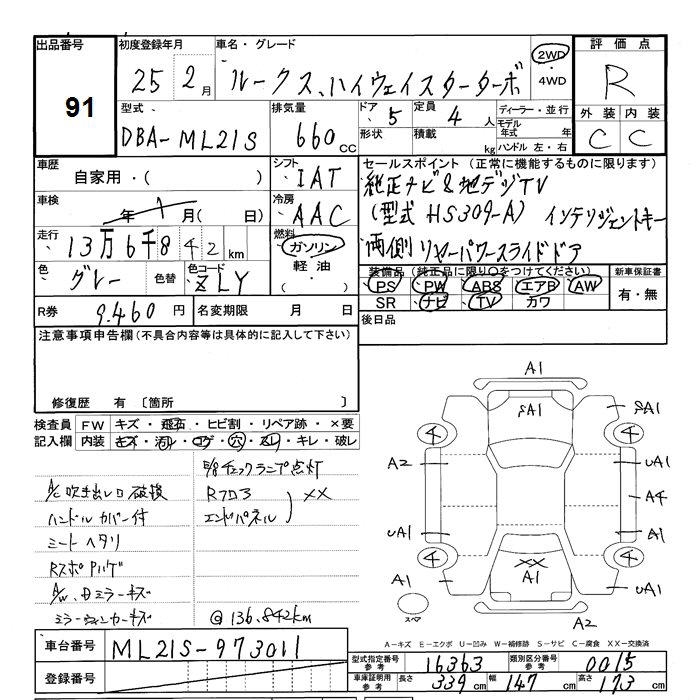 出品番号 初度登録年月 車名・グレード 評価点
91 25年 2月 ルークス、ハイウェイスターターボ 2WD ・4WD R
型式 排気量 ドア 定員 ディーラー・並行 外装 内装
DBA-ML21S 660cc 5 4人 モデル年式 年 C C
形状 積載 kg ハンドル 左・右
車歴 シフト セールスポイント (正常に機能するものに限ります)
自家用・( ) IAT 純正ナビ&地デジTV
車検 年 月(日) 冷房 AAC (型式 HS309-A) インテリジェントキー
走行 13万6千842km 燃料 ガソリン 軽油 ・( ) 両側リヤーパワースライドドア
色 グレー 色替 色コード ZLY 装備品 (純正品に限り○をつけてください) 新車保証書
PS PW ABS エアB AW 有・無
SR ナビ TV カワ
R券 9.460円 名変期限 月 日 後日品
注意事項申告欄(不具合内容等は具体的に記入して下さい)
修復歴 有 〔箇所 〕
検査員 FW キズ・飛石・ヒビ割・リペア跡・×要
記入欄 内装 キズ・汚レ・コゲ・穴・スレ・キレ・破レ
E/gチェックランプ点灯
A/C吹き出し口破損 Rフロア ××
ハンドルカバー付 エンドパネル
シートヘタリ
A/W、
ミラーウィンカーキズ @136.842km
A1
SA1 SA1
4 4
A2 uA1
A4
uA1 A1
4 ×× 4
A1 A1 uA1
スペア A2
A-キズ E-エクボ U-凹み W-補修跡 S-サビ C-腐食 XX-交換済
車台番号 ML21S-973011
登録番号
型式指定番号 参考 16363 類別区分番号 参考 0015
車庫証明用 参考 長さ 339cm 幅 147cm 高さ 173cm